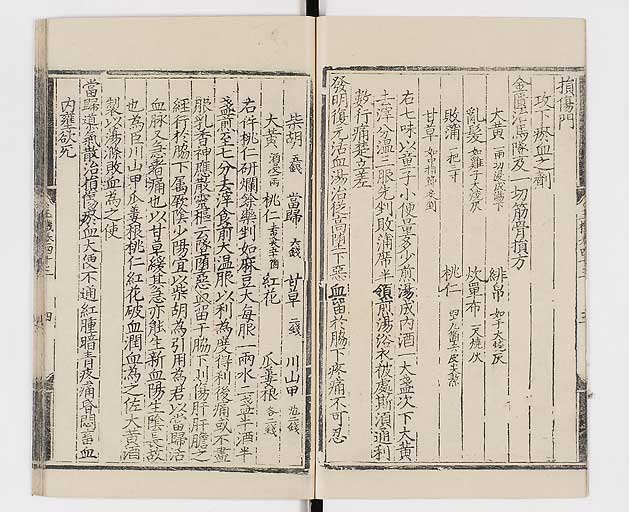 損傷門
攻下瘀血之劑
金匱治馬墜及一切筋骨損方
大黃 一兩切浸成湯下 緋帛 如手大燒灰
亂髮 如雞子大燒灰 炊單布 一尺燒灰
敗蒲 一把三寸 桃仁 四九箇去皮尖熬
甘草 如中指節炙剉
右七味以童子小便量多少煎湯成內酒一大盞次下大黃
去滓分溫三服先剉敗蒲席半領煎湯浴衣被處斯須通利
數行痛楚立差
發明復元活血湯治從高墮下惡血留於脇下疼痛不可忍
柴胡 五錢 當歸 六錢 甘草 二錢 川山甲 炮二錢
大黃 酒浸一兩 桃仁 紅花 瓜蔞根 各二錢
右件桃仁研爛餘藥剉如麻豆大每服一兩水二盞半酒半
盞煎至七分去滓食前大溫服以利為度得利後痛或不盡
服乳香神應散
經行於脇下屬厥陰少陽宜以柴胡為引用為君以當歸活
血脉又急者痛也以甘草緩其急亦能生新血陽生陰長故
也為臣川山甲瓜蔞根桃仁紅花破血潤血為之佐大黃酒
製以蕩滌敗血為之使
當歸導氣散治損傷瘀血大便不通紅腫暗青疼痛昏悶畜血
內壅欲死